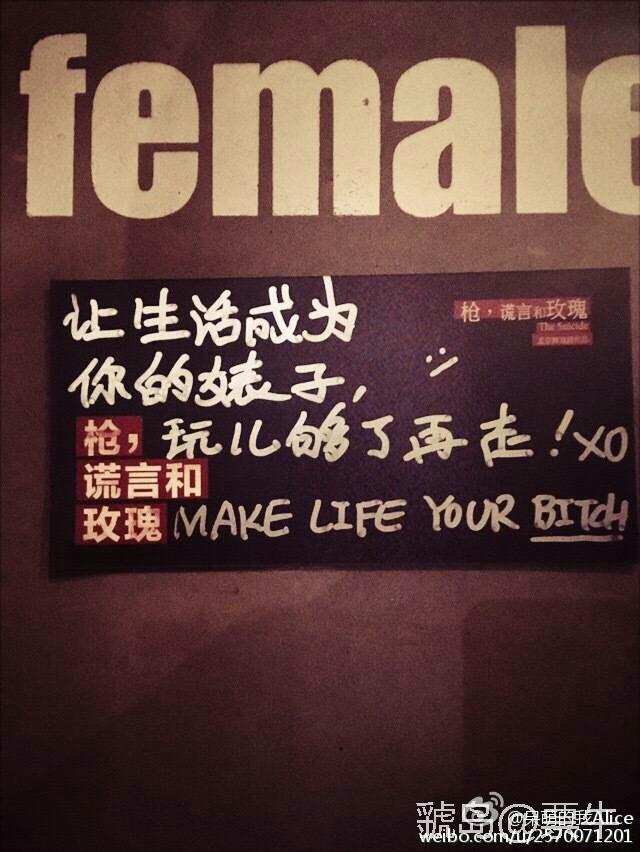 female
让生活成为
你的婊子，
玩儿够了再走！XO
MAKE LIFE YOUR BITCH
枪，
谎言和
玫瑰
枪，谎言和玫瑰
The Suicide
weibo.com/u/2570071201